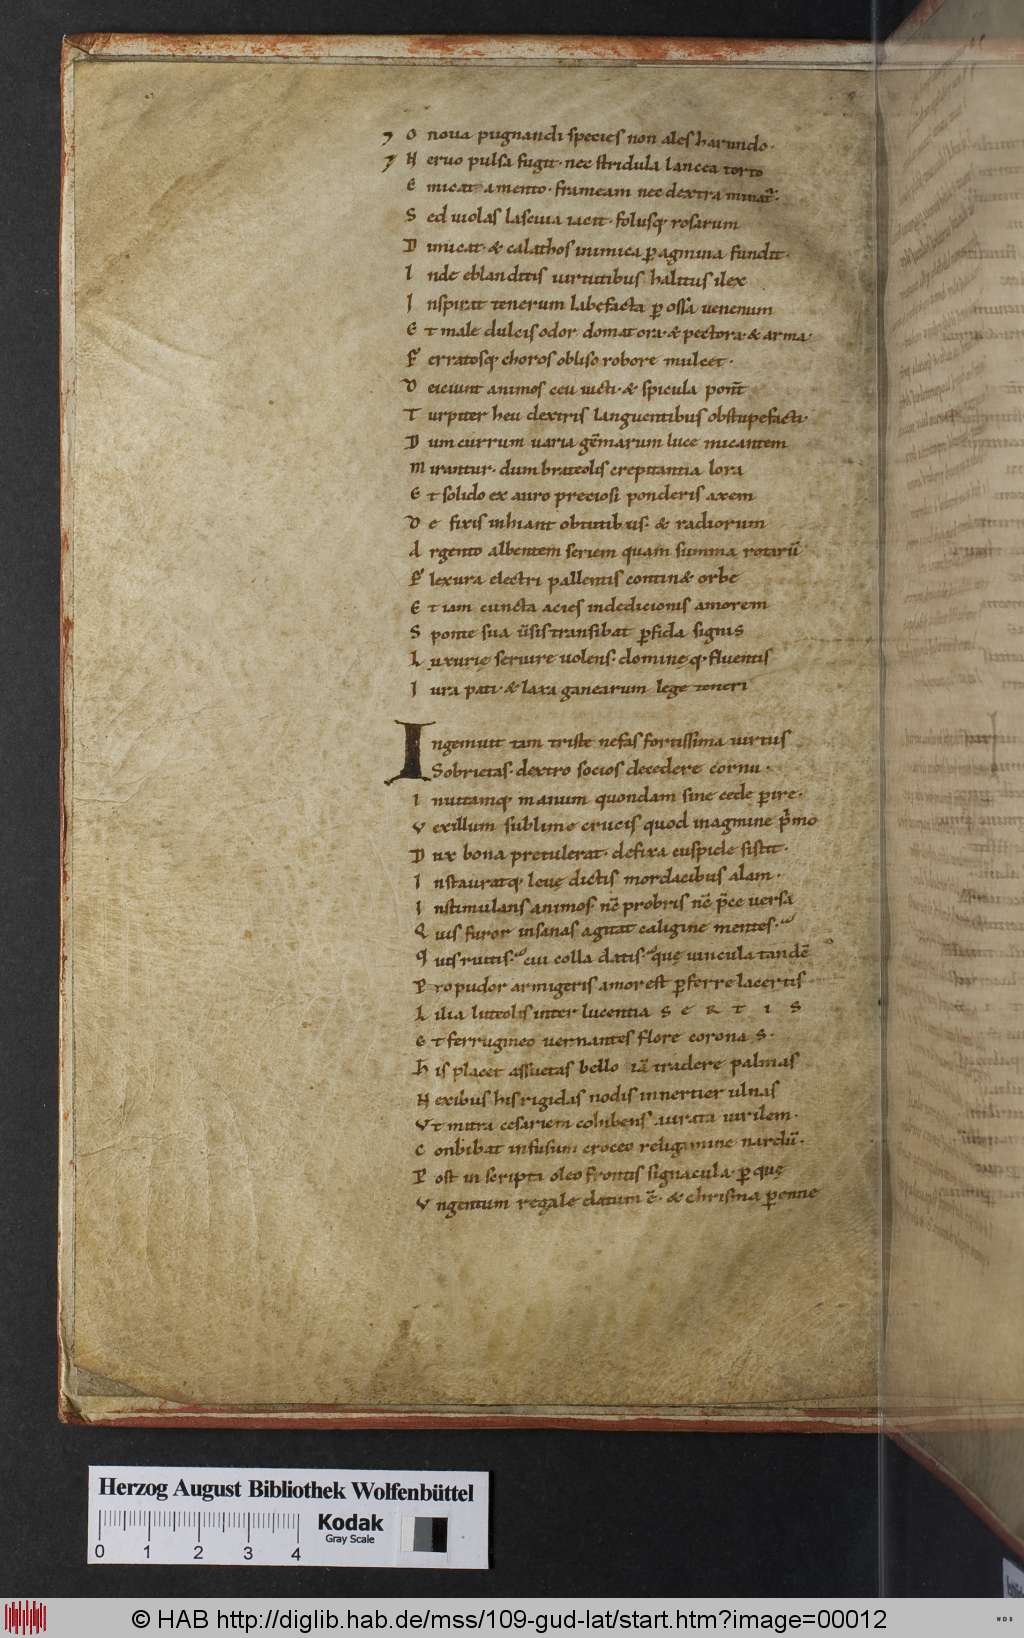 O noua pugnandi species non ales harundo.
N eruo pulsa fugit. nec stridula lancea torto
E micat amento. frameam nec dextra minat᷑.
S ed uiolas lasciua iacit. folusq; rosarum
D imicat. & calathos inimica ꝑ agmina fundit.
I nde eblanditis uirtutibus halitus ilex
I nspirat tenerum labefacta ꝑ ossa uenenum
E t male dulcis odor domat ora. & pectora. & arma.
F erratosq; choros obliso robore mulcet.
D eiciunt animos ceu uicti. & spicula pon̄t
T urpiter heu dextris languentibus obstupefacti.
D um currum uaria gēmarum luce micantem
M irantur. dum brateolis crepitantia lora
E t solido ex auro preciosi ponderis axem
D e fixis inhiant obtutibus. & radiorum
A rgento albentem seriem quam summa rotarū
F lexura electri pallentis contin& orbe
E t iam cuncta acies indedicionis amorem
S ponte sua ūsis transibat ꝑfida signis
L uxurię seruire uolens. dominęq; fluentis
I ura pati. & laxa ganearum lege teneri
Ingemuit tam triste nefas fortissima uirtus
Sobrietas. dextro socios decedere cornu.
I nuitamq; manum quondam sine cede ꝑire.
V exillum sublime crucis quod inagmine p̄mo
D ux bona pretulerat. defixa cuspide sistit.
I nstauratq; leuę dictis mordacibus alam.
I nstimulans animos nc̄ probris nc̄ p̄ce uersā
Q uis furor insanas agitat caligine mentes.
Q uis ruitis. cui colla datis. quę uincula tandē
P ro pudor armigeris amor est ꝑferre lacertis
L ilia luteolis inter lucentia S E R T I S
E t ferrugineo uernantes flore corona S.
H is placet assuetas bello iā tradere palmas
N exibus his rigidas nodis innertier ulnas
V t mitra cesariem cohibens aurata uirilem.
C onbibat infusum croceo religamine nardū.
P ost inscripta oleo frontis signacula. ꝑ quę
V ngentum regale datum ē. & chrisma ꝑenne
Herzog August Bibliothek Wolfenbüttel
Kodak
Gray Scale
0 1 2 3 4
© HAB http://diglib.hab.de/mss/109-gud-lat/start.htm?image=00012